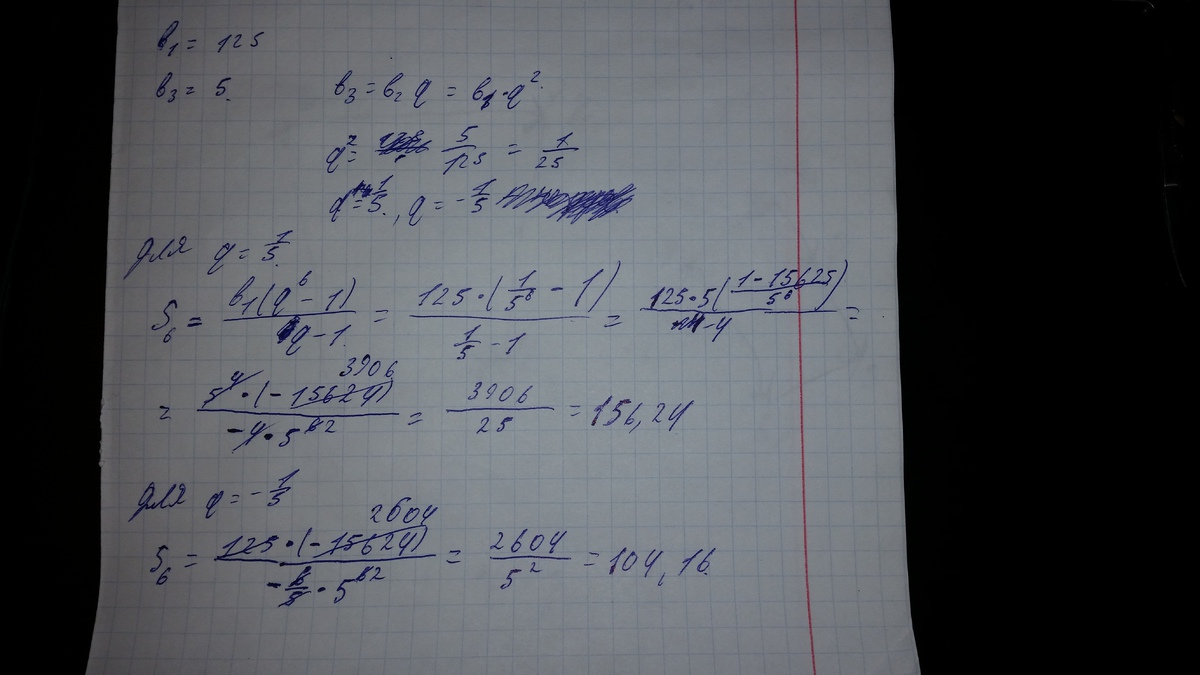 b₁ = 125
b₃ = 5. b₃ = b₂ q = b₁ · q².
q² = 5/125 = 1/25
q = 1/5., q = -1/5
для q = 1/5.
S₆ = b₁(q⁶ - 1)/(q - 1) = 125 · (1/5⁶ - 1)/(1/5 - 1) = 125 · 5 ((1 - 15625)/5⁶)/(-4) =
= 5⁴ · (-15624) 3906/(-4 · 5⁶ ²) = 3906/25 = 156,24
для q = -1/5
S₆ = 125 · (-15624) 2604/(-6/5 · 5⁶ ²) = 2604/5² = 104,16.